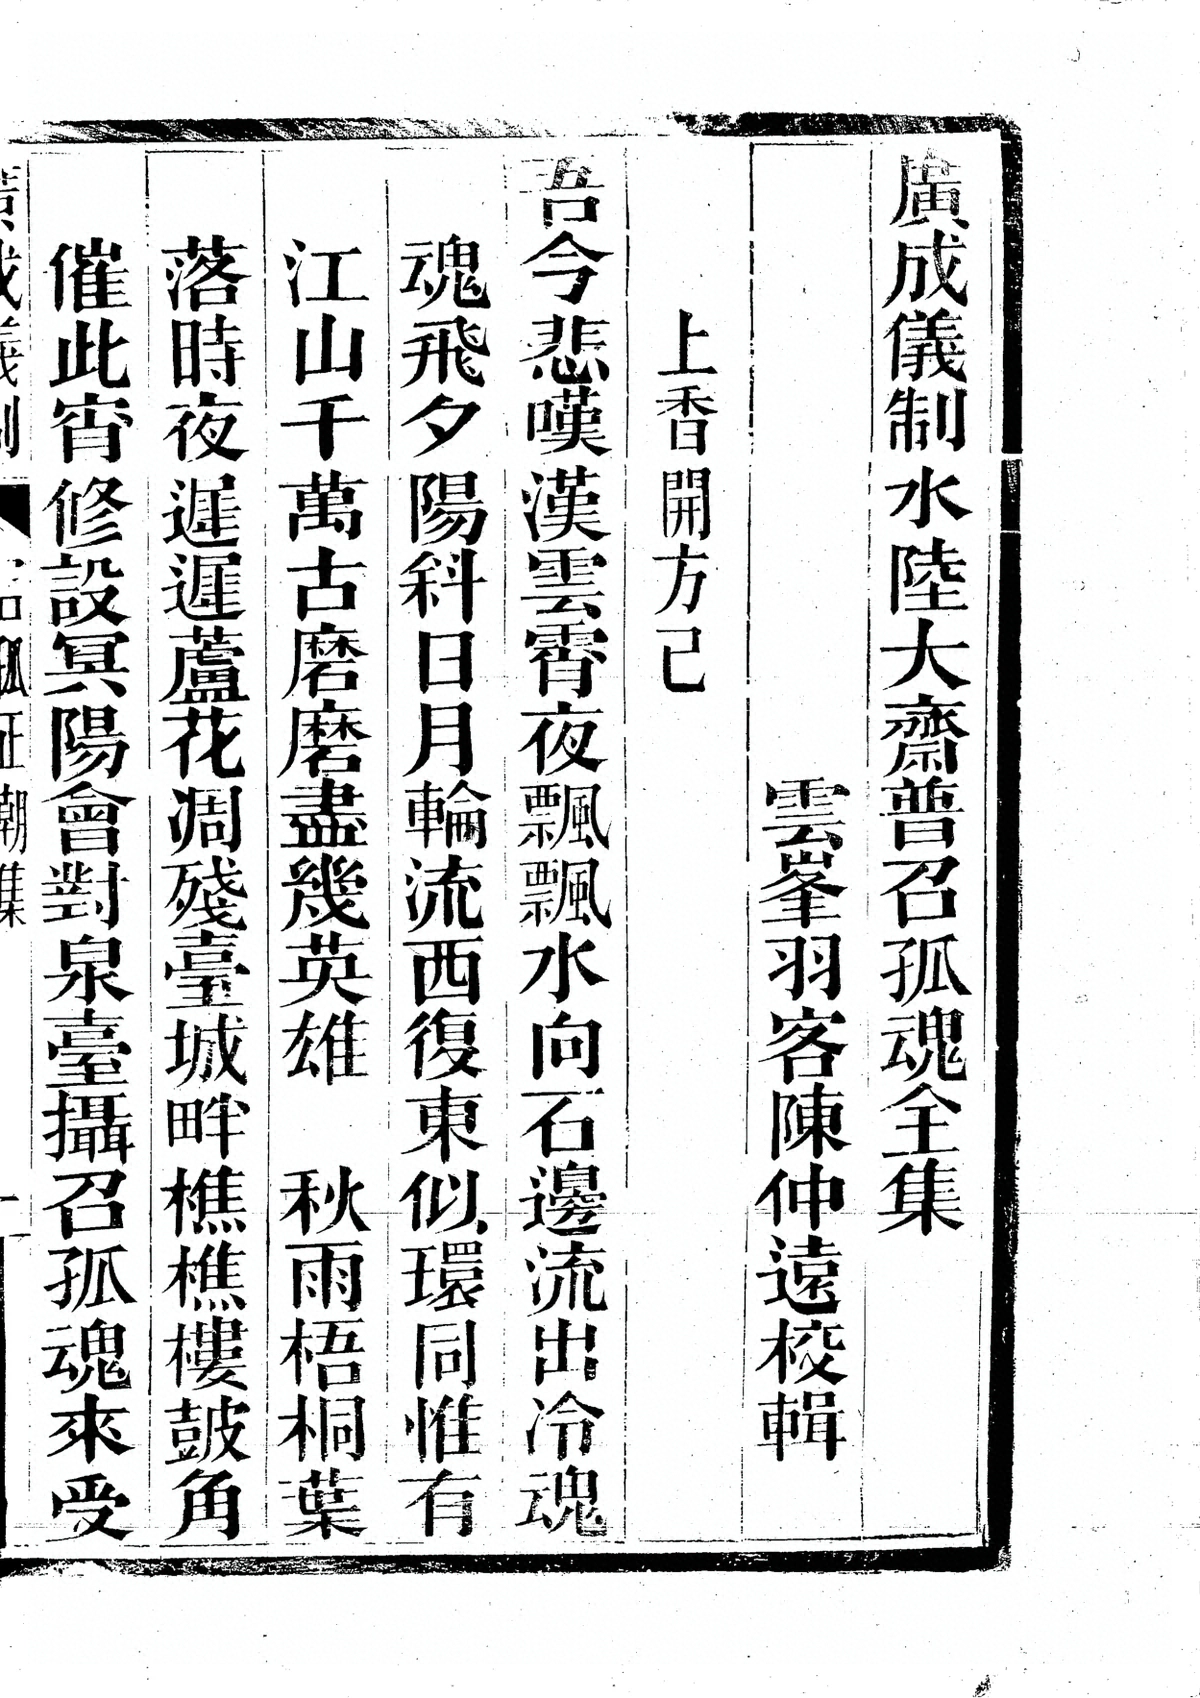 廣成儀制水陸大齋普召孤魂全集
雲峯羽客陳仲遠校輯
上香開方已
吾今悲嘆漢雲霄夜飄飄水向石邊流出冷魂
魂飛夕陽科日月輪流西復東似環同惟有
江山千萬古磨磨盡幾英雄 秋雨梧桐葉
落時夜遲遲蘆花凋殘臺城畔樵樵樓鼓角
催此宵修設冥陽會對泉臺攝召孤魂來受